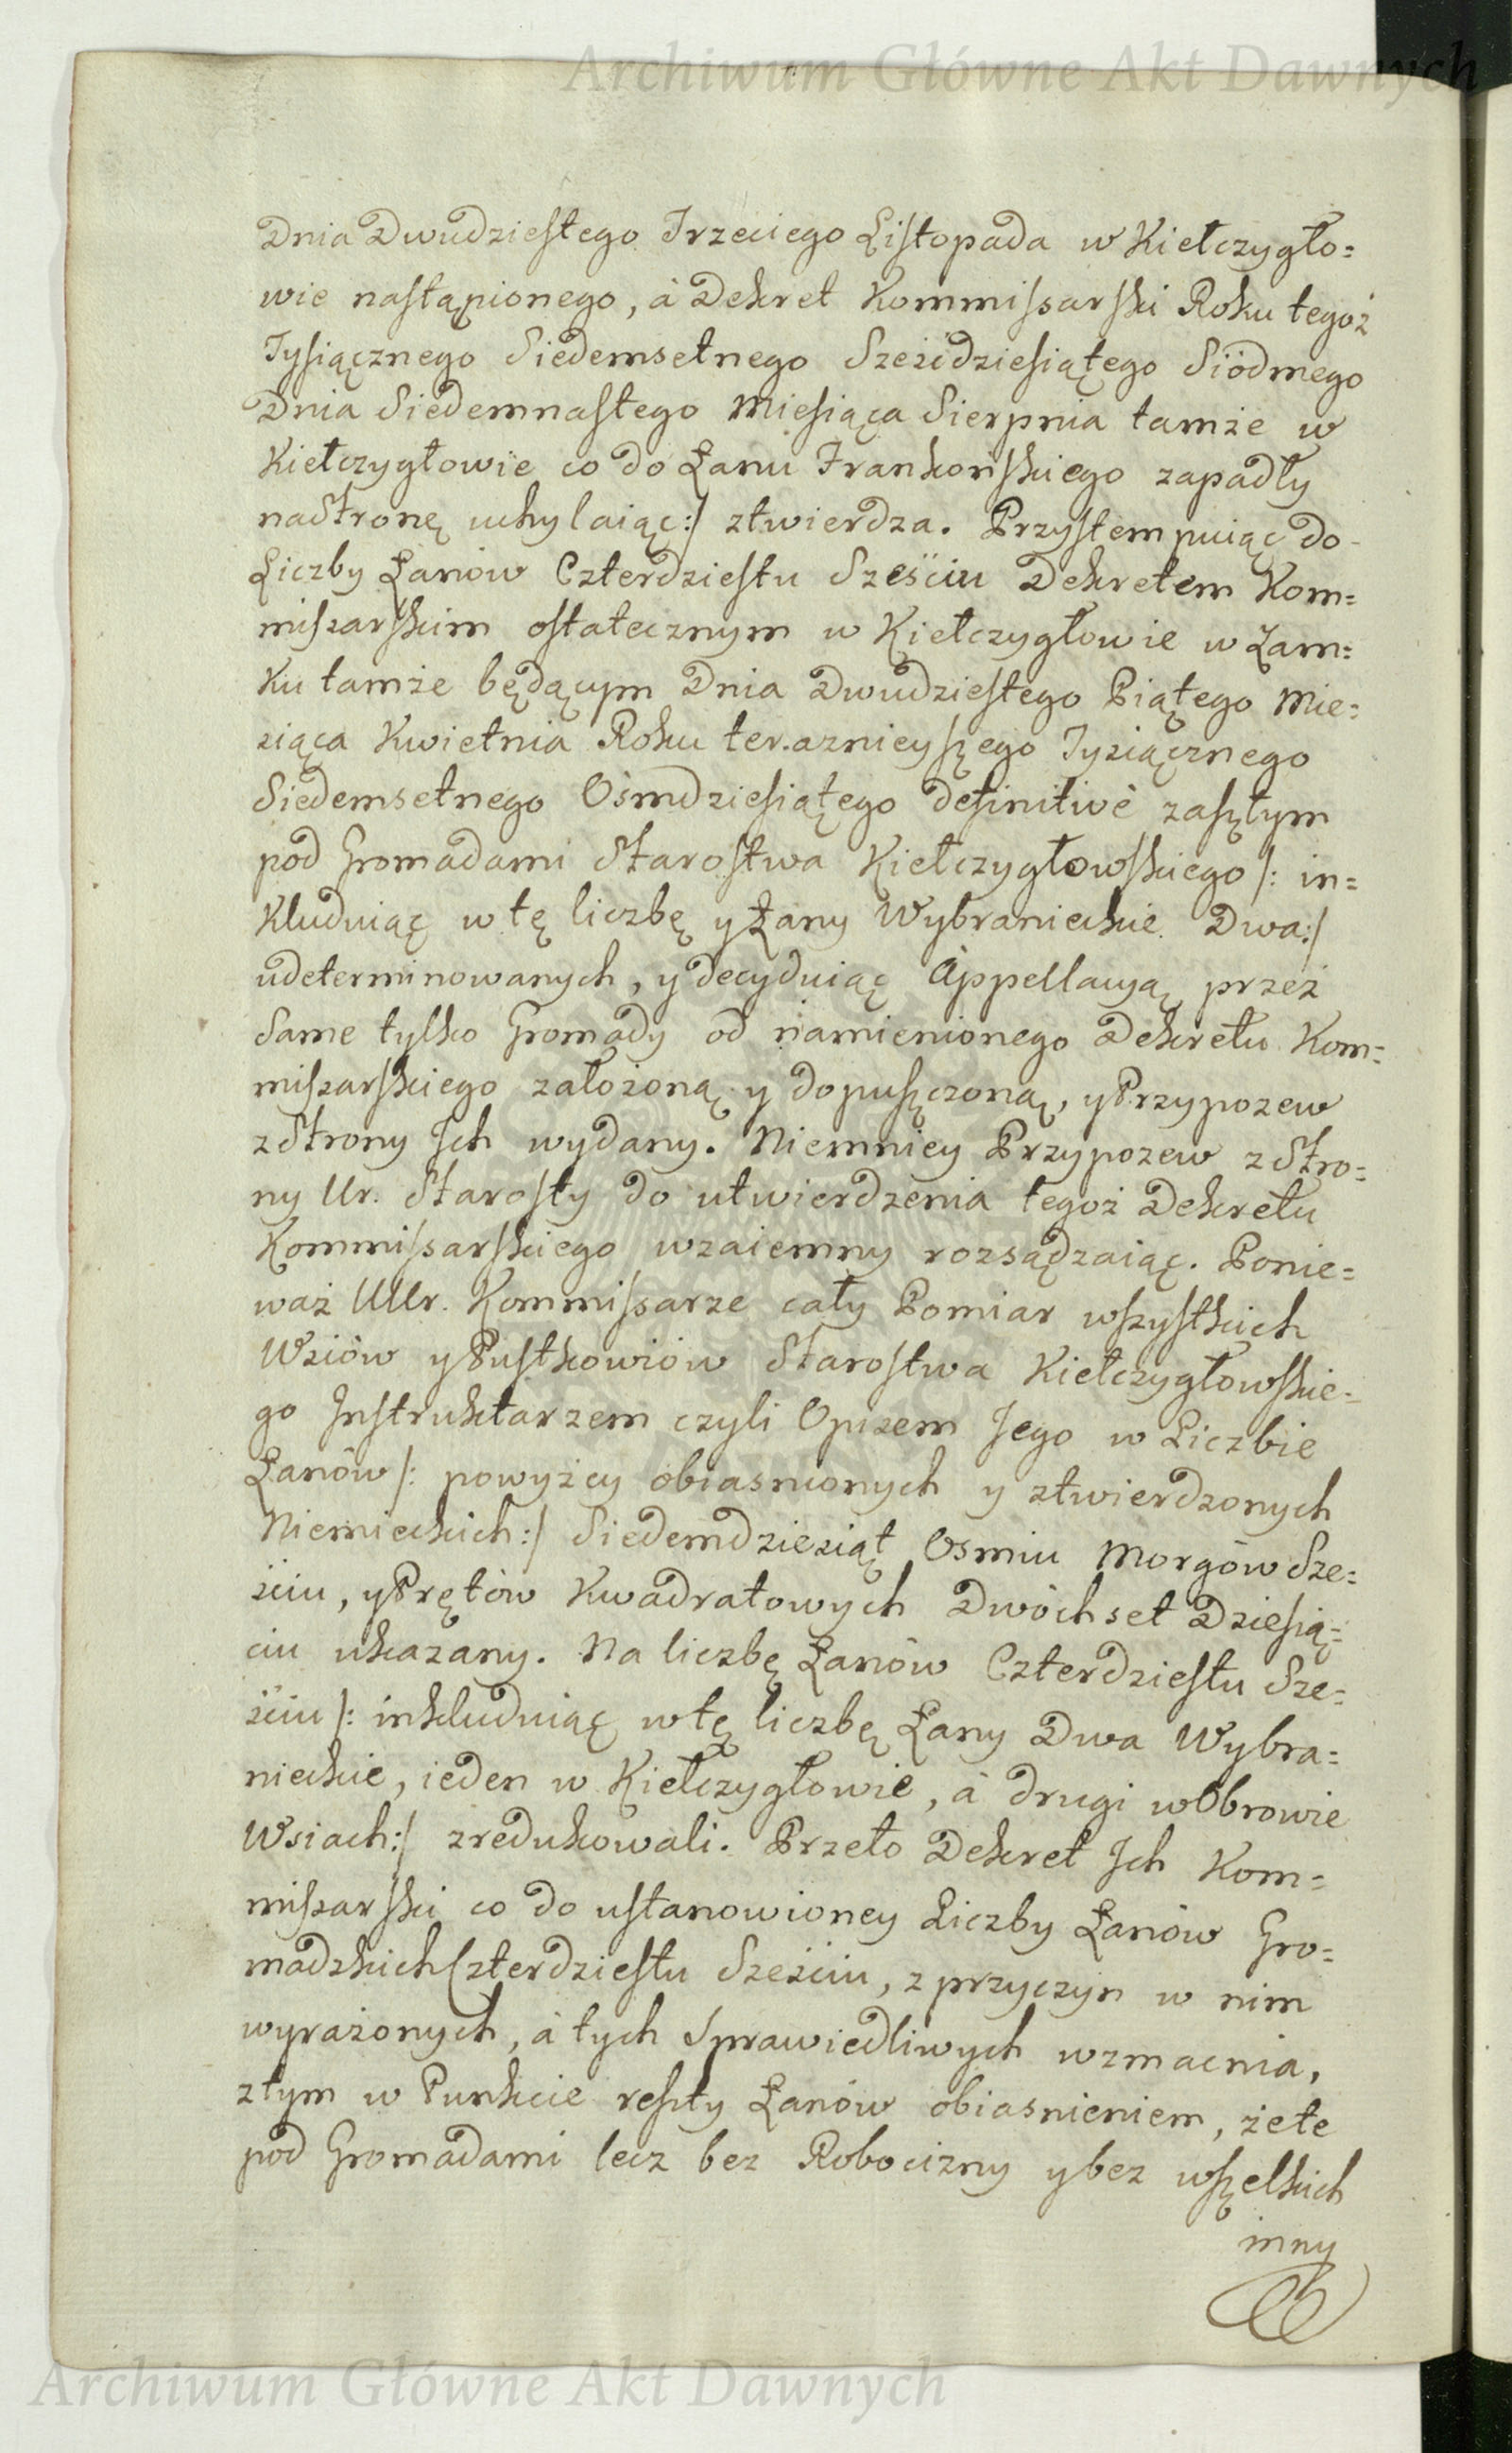 Archiwum Główne Akt Dawnych
Dnia Dwudziestego Trzeciego Listopada w Kiełczygło=
wie nastąpionego, à Dekret Kommissarski Roku tegoż
Tysiącznego Siedemsetnego Sześćdziesiątego Siódmego
Dnia Siedemnastego Miesiąca Sierpnia tamże w
Kiełczygłowie co do Łanu Frankońskiego zapadły
na Stronę uchylaiąc:/ ztwierdza. Przystempuiąc do
Liczby Łanów Czterdziestu Sześciu Dekretem Kom=
miszarskim ostatecznym w Kiełczygłowie w Zam=
ku tamże będącym Dnia Dwudziestego Piątego Mie=
siąca Kwietnia Roku teraznieyszego Tysiącznego
Siedemsetnego Osmdziesiątego definitivè zaszłym
pod Gromadami Starostwa Kiełczygłowskiego /: in=
kluduiąc w tę liczbę y Łany Wybranieckie Dwa:/
udeterminowanych, y decyduiąc Appellacyą przez
Same tylko Gromady od namienionego Dekretu Kom=
miszarskiego założoną y dopuszczoną, y Przypozew
z Strony Ich wydany. Niemniey Przypozew z Stro=
ny Ur. Starosty do utwierdzenia tegoż Dekretu
Kommissarskiego wzaiemny rozsądzaiąc. Ponie=
waż UUr. Kommissarze cały Pomiar wszystkich
Wsiów y Pustkowiów Starostwa Kiełczygłowskie=
go Instruktarzem czyli Opisem Jego w Liczbie
Łanów /: powyżey obiasnionych y ztwierdzonych
Niemieckich:/ Siedemdziesiąt Osmiu Morgów Sze=
ściu, y Prętów Kwadratowych Dwóchset Dziesię=
ciu ukazany. Na liczbę Łanów Czterdziestu Sze=
ściu /: inkluduiąc w tę liczbę Łany Dwa Wybra=
nieckie, ieden w Kiełczygłowie, à drugi w Obrowie
Wsiach:/ zredukowali. Przeto Dekret Ich Kom=
miszarski co do ustanowioney Liczby Łanów Gro=
madzkich Czterdziestu Sześciu, z przyczyn w nim
wyrażonych, à tych Sprawiedliwych wzmacnia,
z tym w Punkcie reszty Łanów obiasnieniem, że te
pod Gromadami lecz bez Robocizny y bez wszelkich
inny
Archiwum Główne Akt Dawnych